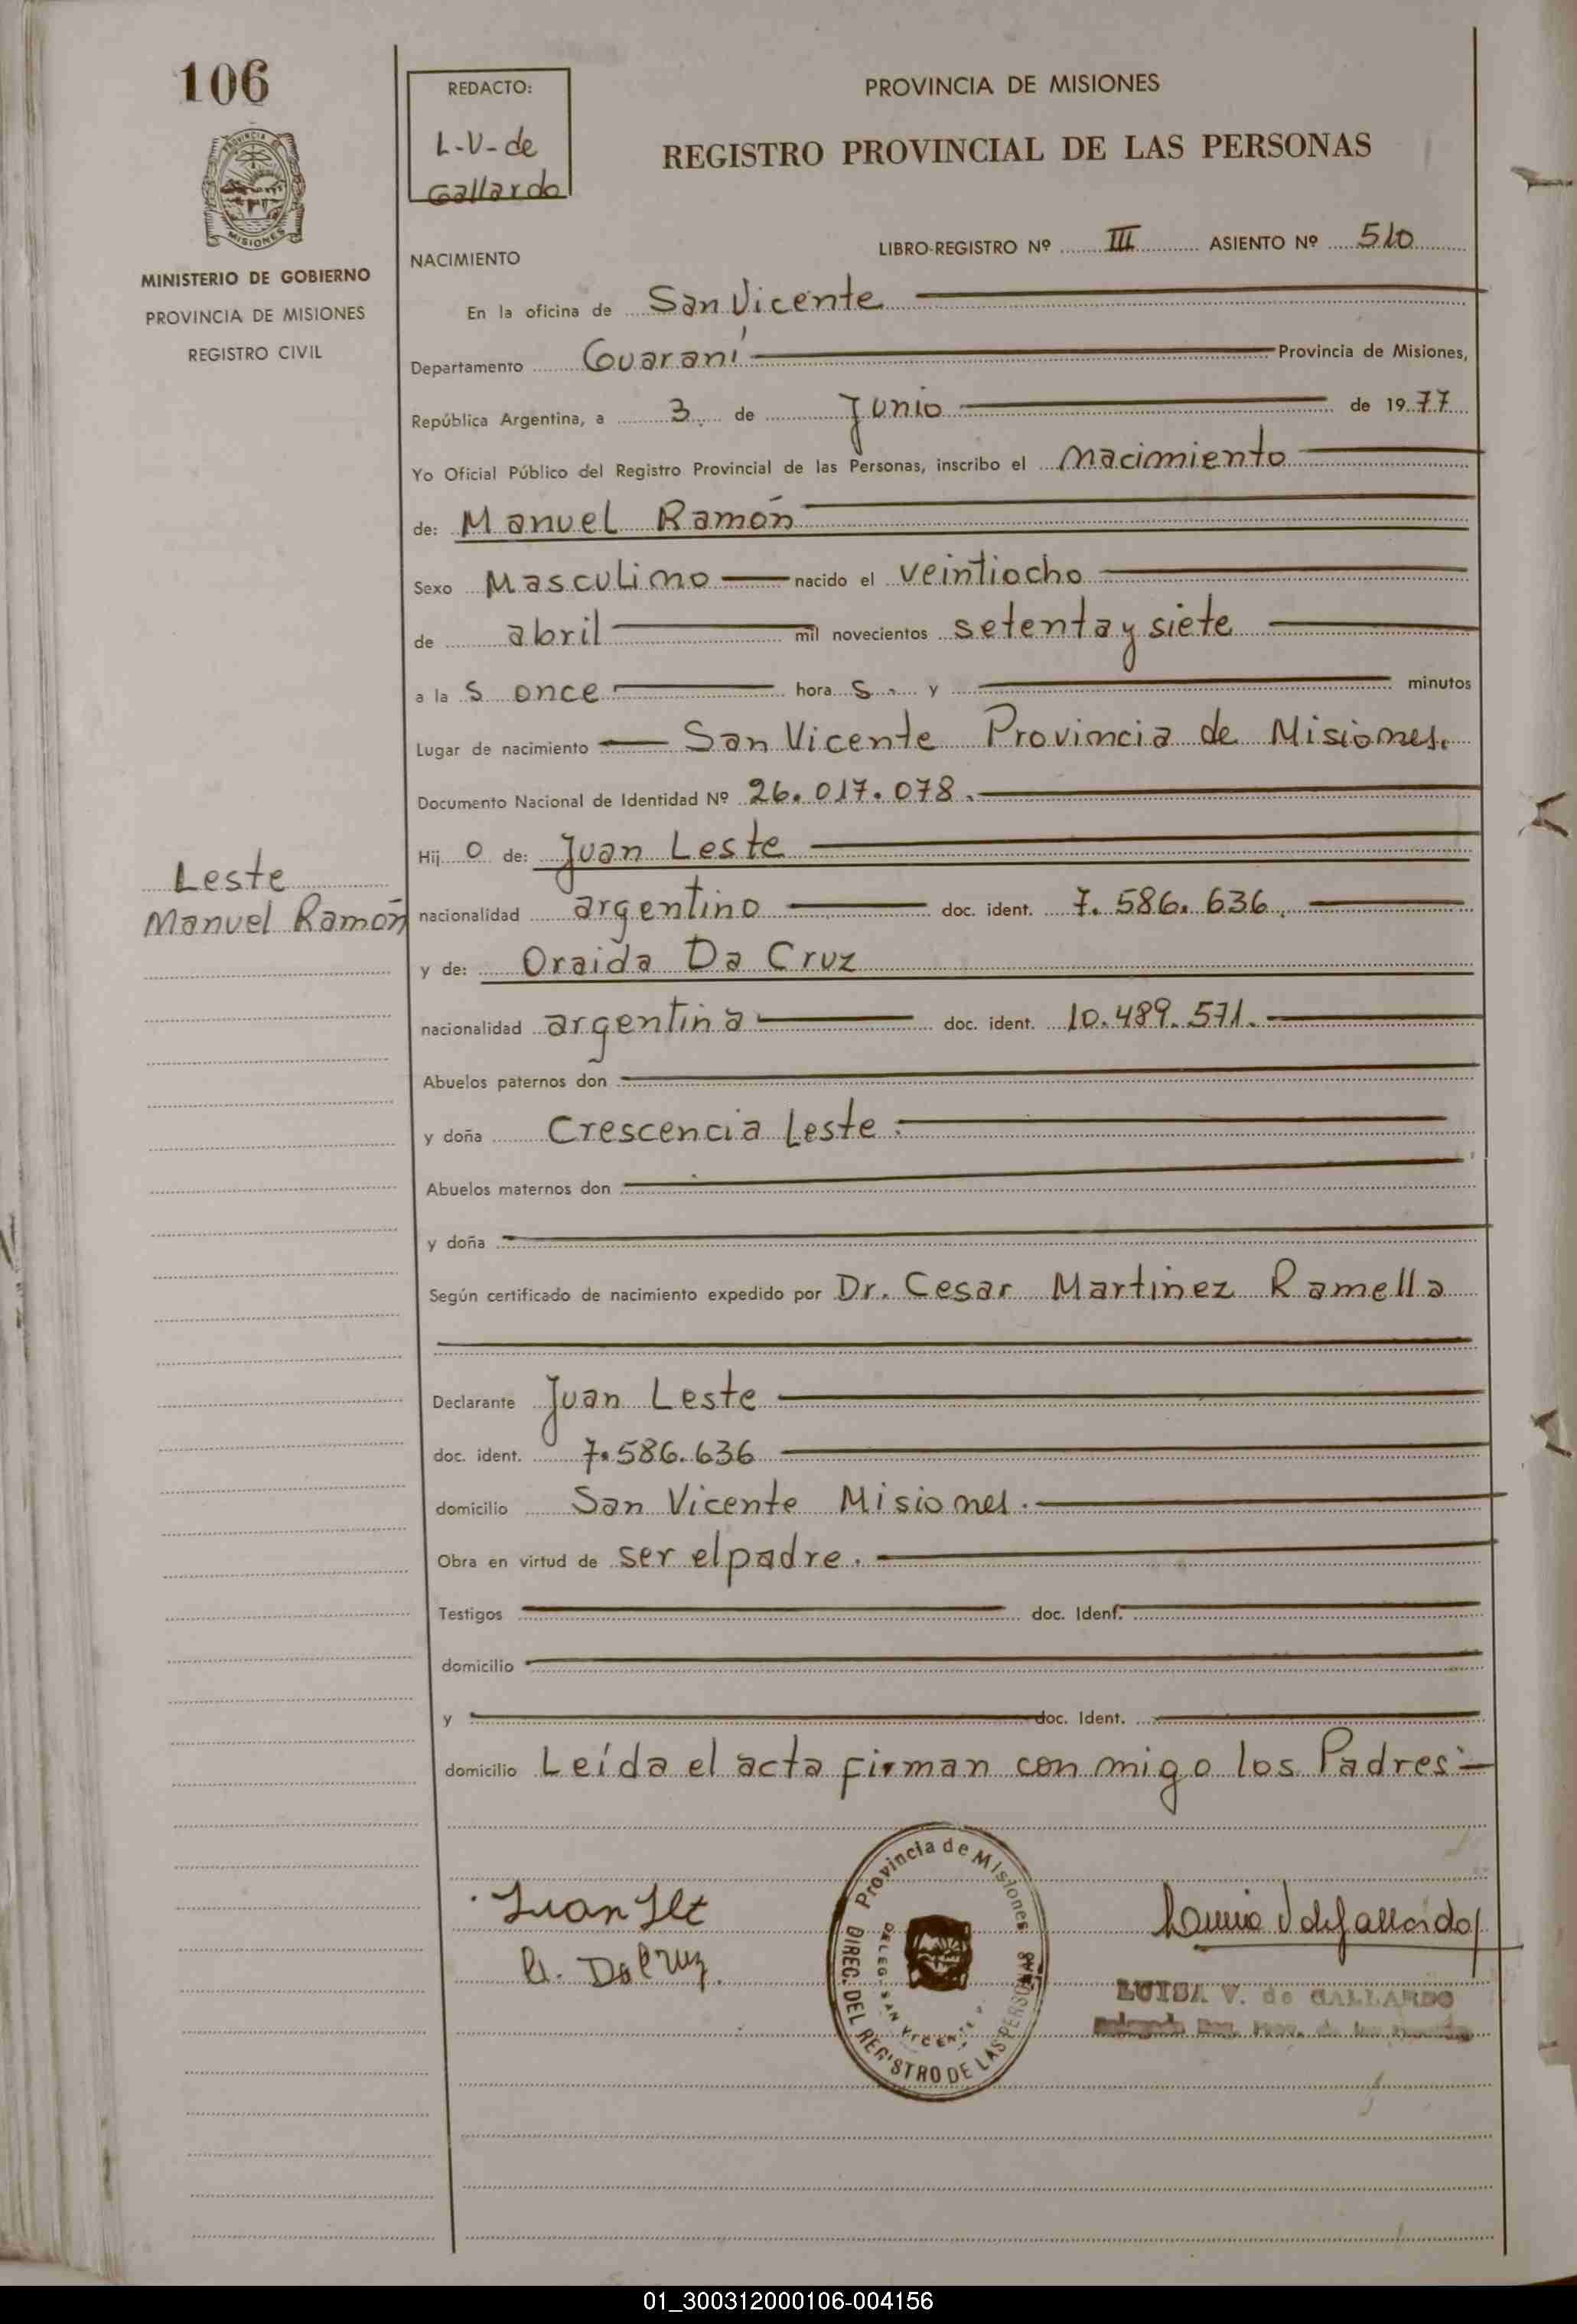 106
PROVINCIA DE
MISIONES
MINISTERIO DE GOBIERNO
PROVINCIA DE MISIONES
REGISTRO CIVIL
REDACTO:
L-V-de
Gallardo
PROVINCIA DE MISIONES
REGISTRO PROVINCIAL DE LAS PERSONAS
LIBRO-REGISTRO Nº III ASIENTO Nº 510
NACIMIENTO
En la oficina de San Vicente
Departamento Guaraní Provincia de Misiones,
República Argentina, a 3 de Junio de 1977
Yo Oficial Público del Registro Provincial de las Personas, inscribo el nacimiento
de: Manuel Ramón
Sexo Masculino nacido el veintiocho
de abril mil novecientos setenta y siete
a la s once hora s y minutos
Lugar de nacimiento San Vicente Provincia de Misiones.
Documento Nacional de Identidad Nº 26.017.078.
Hij o de: Juan Leste
Leste
Manuel Ramón
nacionalidad argentino doc. ident. 7.586.636.
y de: Oraida Da Cruz
nacionalidad argentina doc. ident. 10.489.571.
Abuelos paternos don
y doña Crescencia Leste.
Abuelos maternos don
y doña
Según certificado de nacimiento expedido por Dr. Cesar Martinez Ramella
Declarante Juan Leste
doc. ident. 7.586.636
domicilio San Vicente Misiones.
Obra en virtud de ser el padre.
Testigos doc. Ident.
domicilio
y doc. Ident.
domicilio Leída el acta firman con migo los Padres:-
Provincia de Misiones
DIREC. DEL REGISTRO DE LAS PERSONAS
DELEG. SAN VICENTE
Juan
Da Cruz
LUISA V. de GALLARDO
01_300312000106-004156